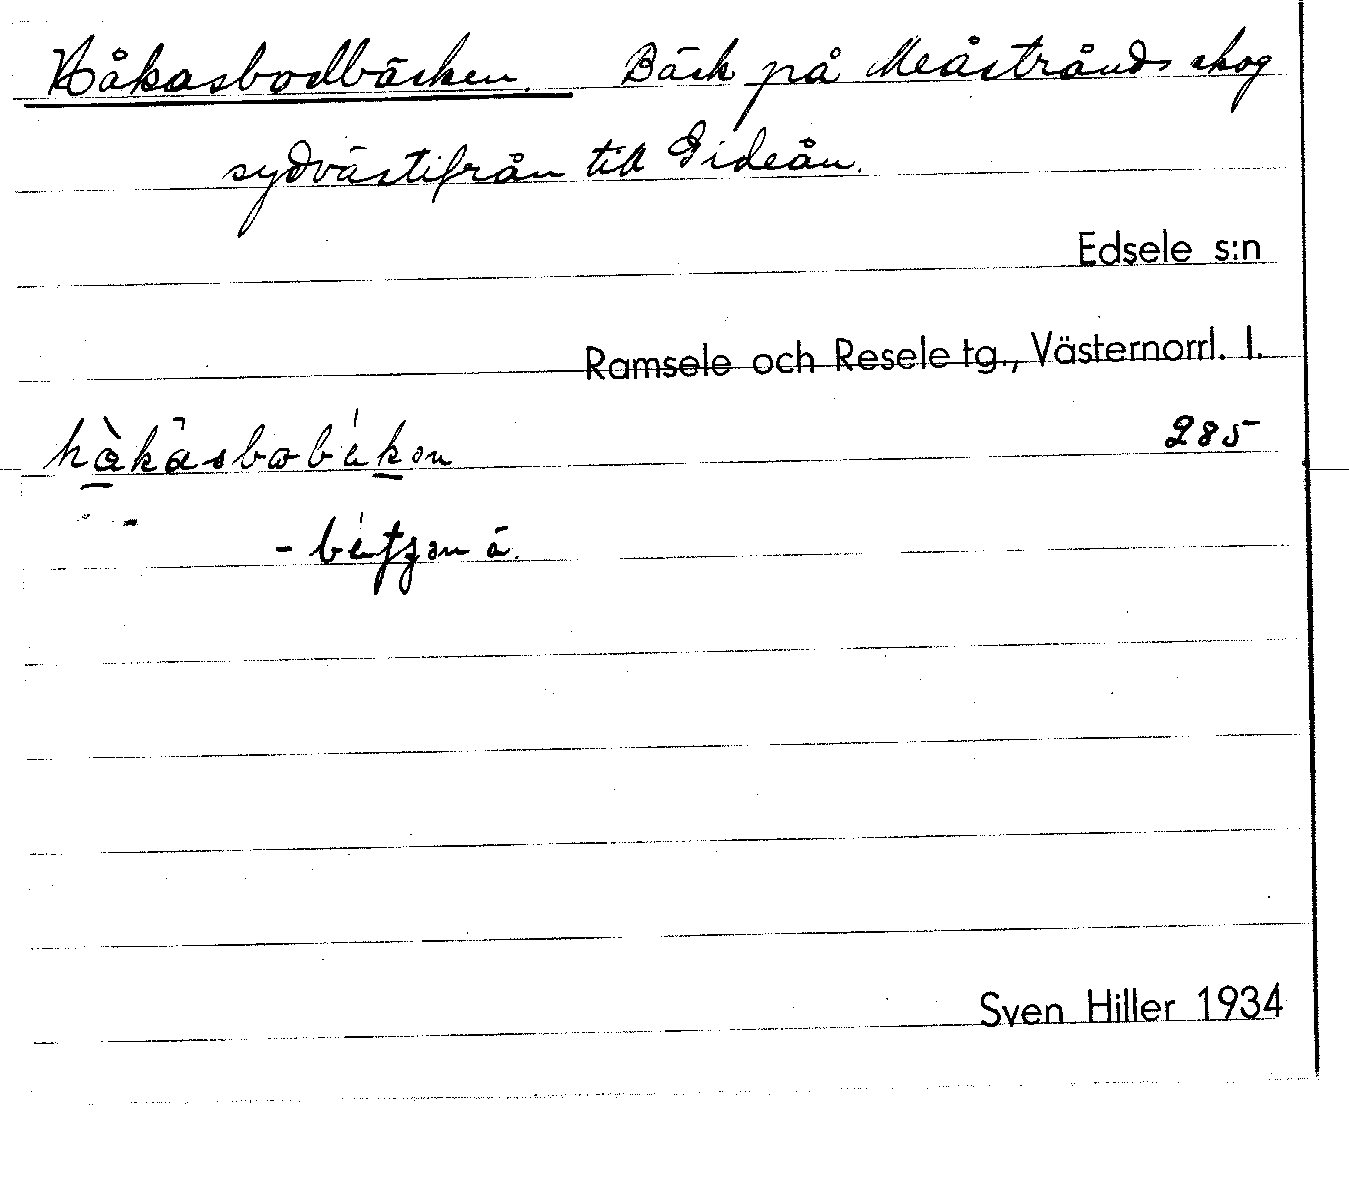 Håkasbodbäcken. Bäck på Meåstrånds skog
sydvästifrån till Gideån.
Edsele s:n
Ramsele och Resele tg., Västernorrl. l.
285
Sven Hiller 1934